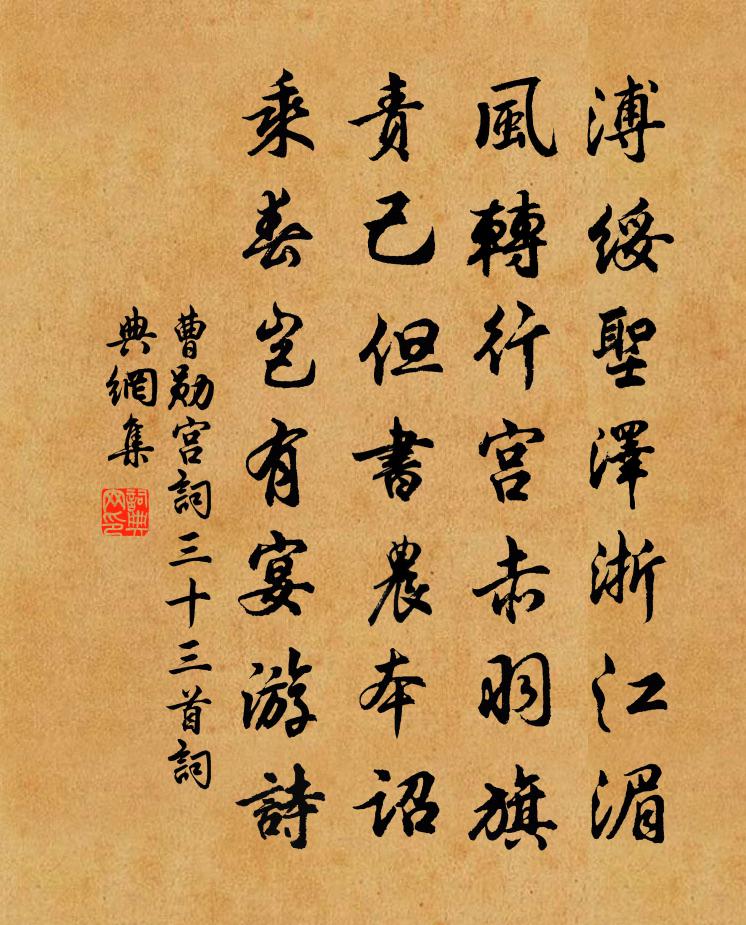 溥綏聖澤浙江湄
風轉行宮赤羽旗
責己但書農本詔
乘春豈有宴游詩
曹勛宮詞三十三首詞
典網集
詞典網印